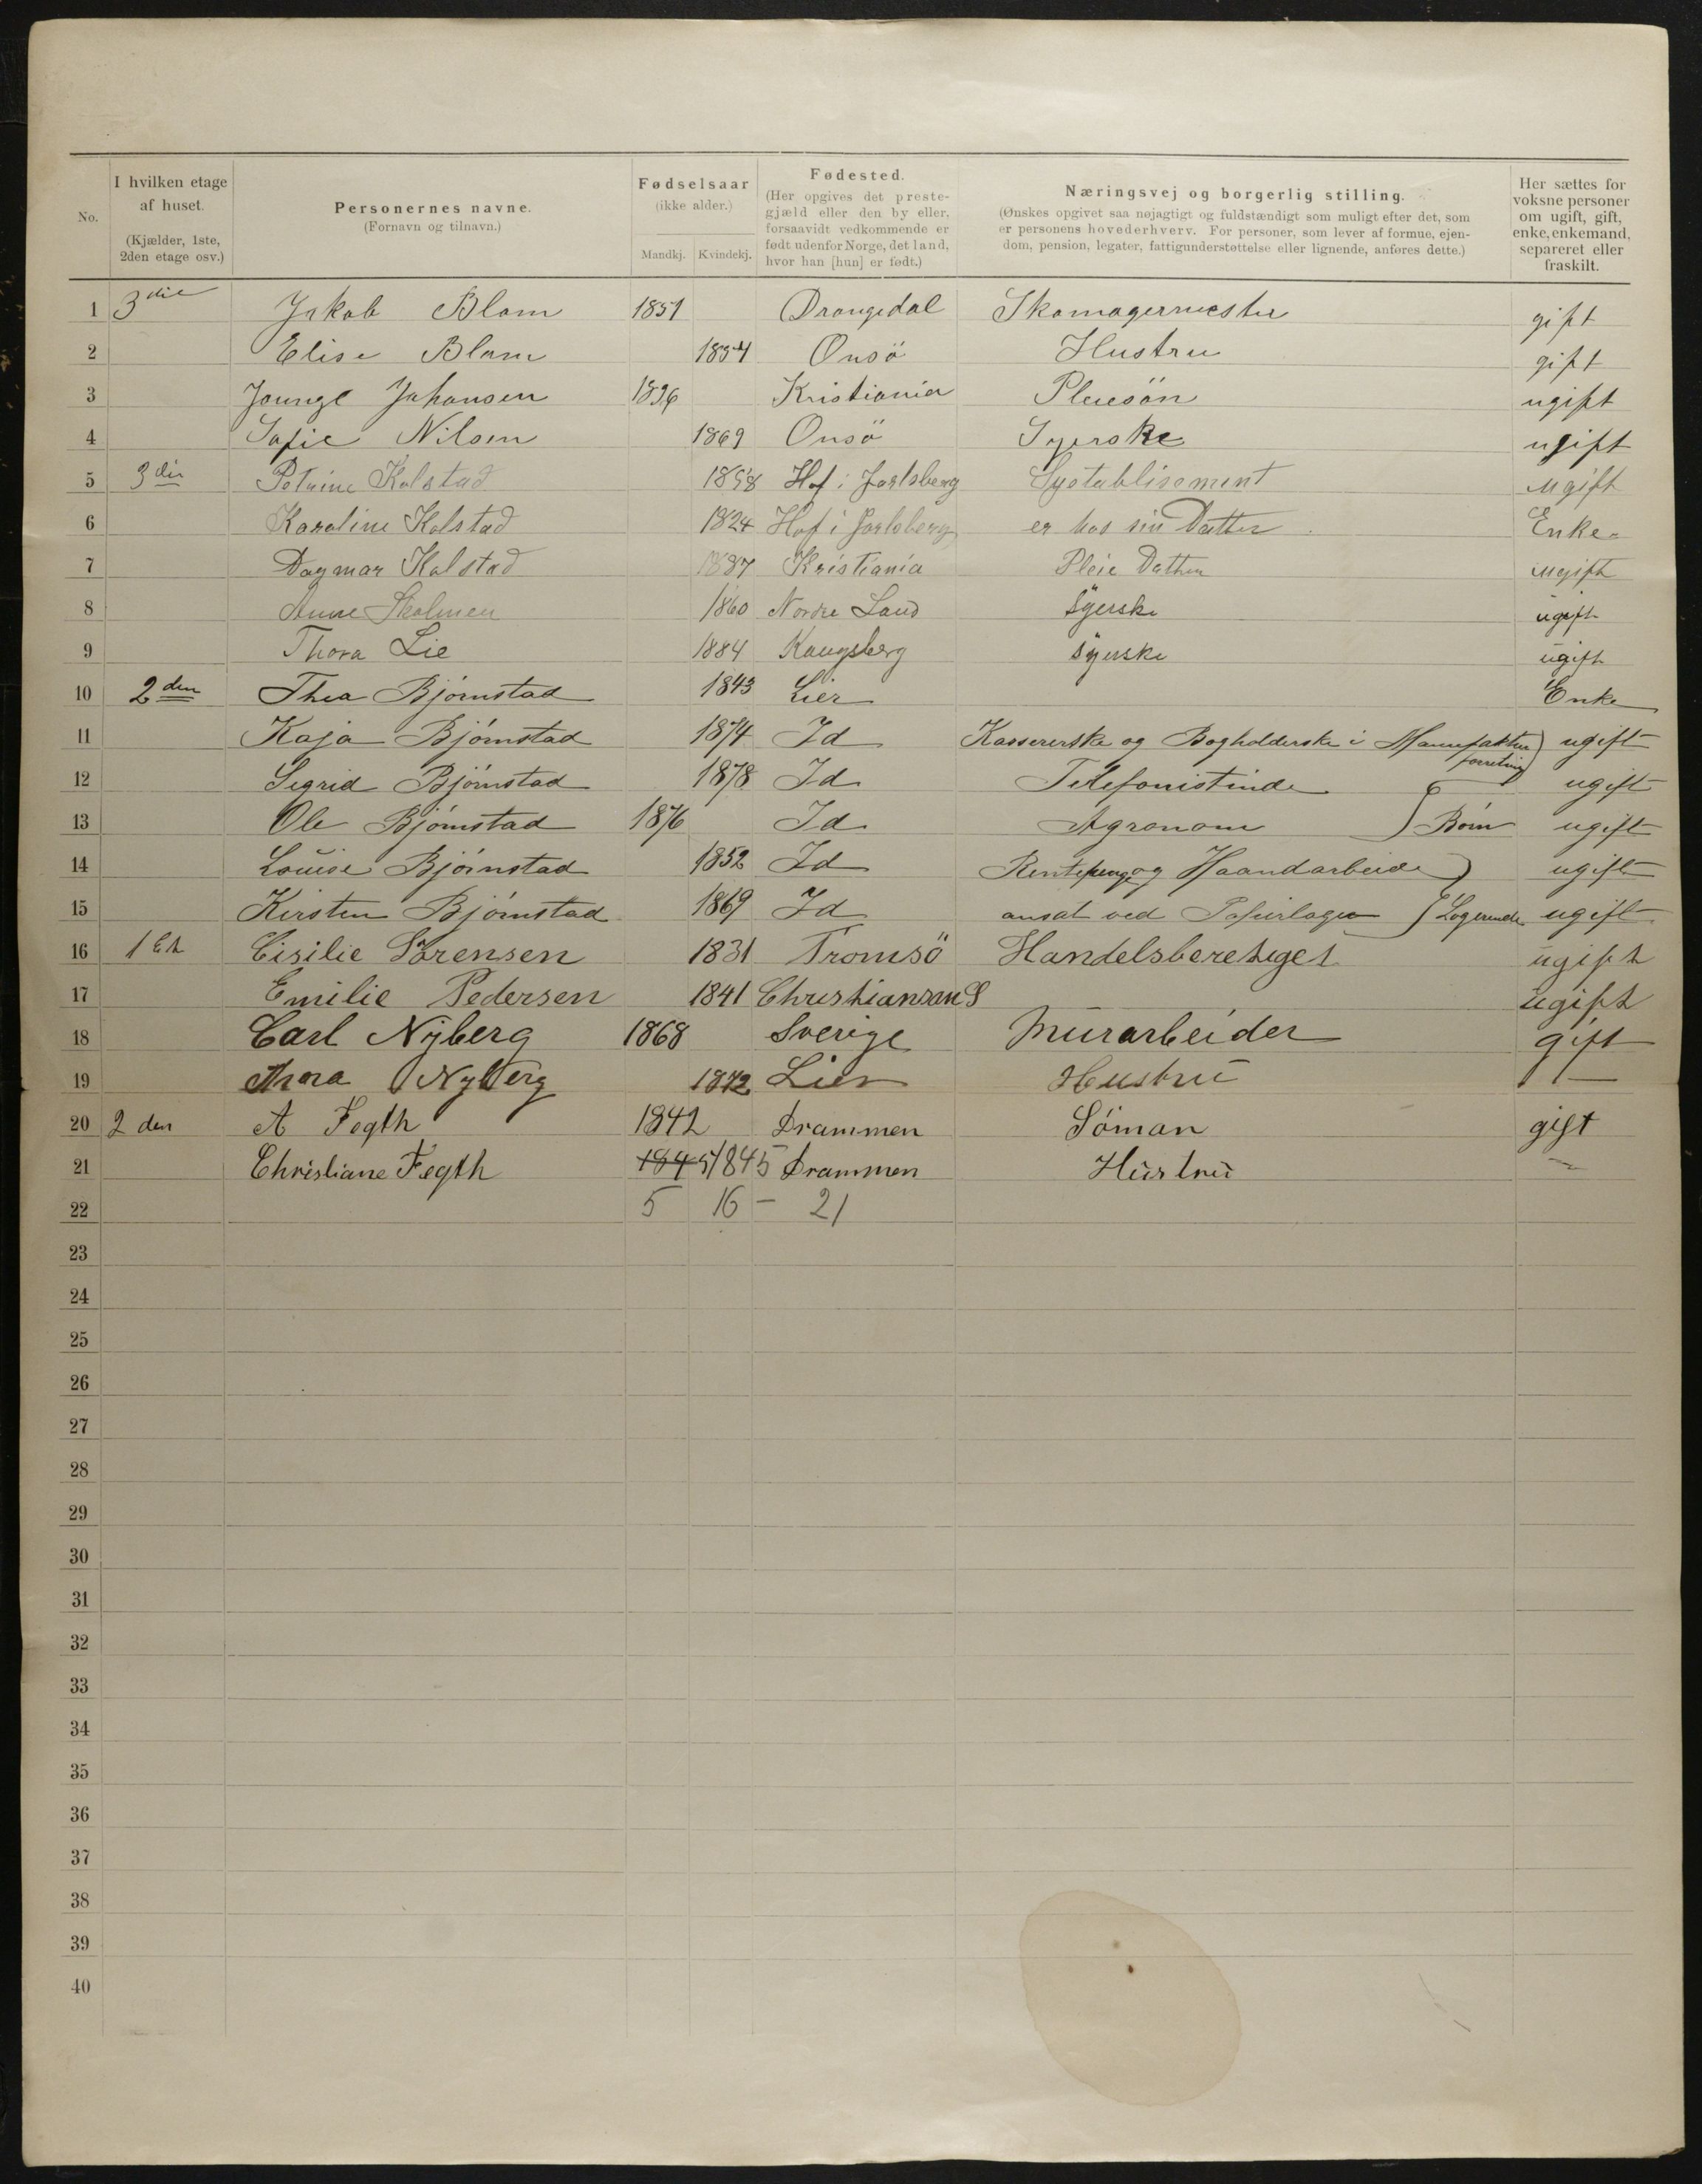 No.
I hvilken etage af huset. (Kjælder, 1ste, 2den etage osv.)
Personernes navne. (Fornavn og tilnavn.)
Fødselsaar (ikke alder.) Mandkj. Kvindekj.
Fødested. (Her opgives det prestegjæld eller den by eller, forsaavidt vedkommende er født udenfor Norge, det land, hvor han [hun] er født.)
Næringsvej og borgerlig stilling. (Ønskes opgivet saa nøjagtigt og fuldstændigt som muligt efter det, som er personens hovederhverv. For personer, som lever af formue, ejendom, pension, legater, fattigunderstøttelse eller lignende, anføres dette.)
Her sættes for voksne personer om ugift, gift, enke, enkemand, separeret eller fraskilt.
1 3die Jakob Blom 1851 Drangedal Skomagermester gift
2 Elise Blom 1854 Onsö Hustru gift
3 Johansen Kristiania Pleiesön ugift
4 Sofie Nilsen 1869 Onsö Syerske ugift
5 3die Petrine Kolstad 1858 Hof i Jarlsberg Syetablisement ugift
6 Karoline Kolstad 1824 Hof i Jarlsberg er hos sin Datter Enke
7 Dagmar Kolstad 1887 Kristiania Pleie Datter ugift
8 Anne 1860 Nordre Land Syerske ugift
9 Thora Lie 1884 Kongsberg Syerske ugift
10 2den Thea Bjørnstad 1843 Lier Enke
11 Kaja Bjørnstad 1874 Id Kassererske og Bogholderske i Manufaktur forretning ugift
12 Sigrid Bjørnstad 1878 Id Telefonistinde ugift
13 Ole Bjørnstad 1876 Id Agronom } Børn ugift
14 Louise Bjørnstad 1852 Id Rentepenge og Haandarbeide ugift
15 Kirsten Bjørnstad 1869 Id ansat ved Papirlager } Logerende ugift
16 1 Et Cisilie Sörensen 1831 Tromsö Handelsberetiget ugift
17 Emilie Pedersen 1841 Christiansand ugift
18 Carl Nyberg 1868 Sverige Murarbeider gift
19 Anna Nyberg 1872 Lier Hustru –"–
20 2den A Fegth 1842 Drammen Søman gift
21 Christiane Fegth 1845 1845 Drammen Hustru
22 5 16 – 21
23
24
25
26
27
28
29
30
31
32
33
34
35
36
37
38
39
40